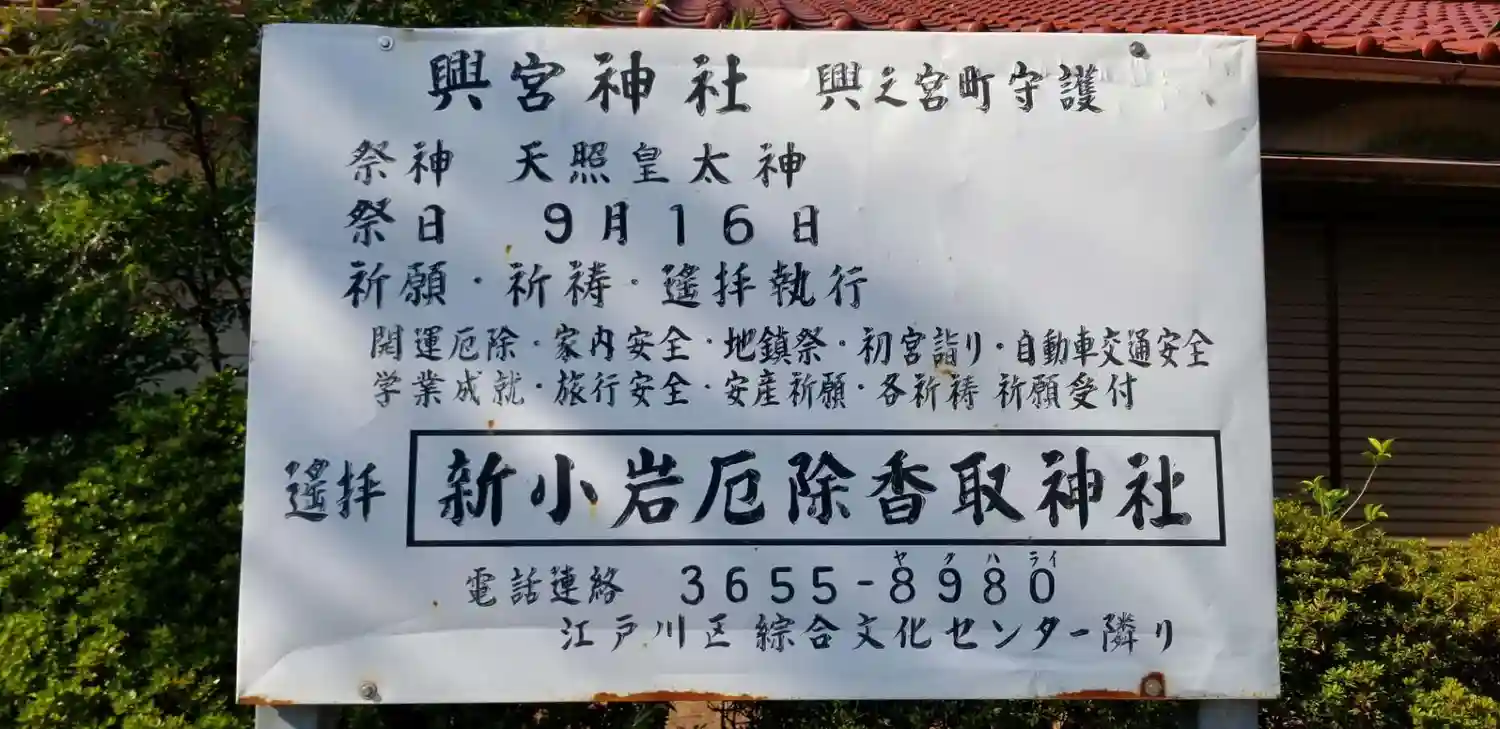 興宮神社 興之宮町守護
祭神 天照皇太神
祭日 9月16日
祈願・祈祷・遙拝執行
開運厄除・家内安全・地鎮祭・初宮詣り・自動車交通安全
学業成就・旅行安全・安産祈願・各祈祷 祈願受付
遙拝 新小岩厄除香取神社
ヤクハライ
電話連絡 3655-8980
江戸川区 綜合文化センター隣り